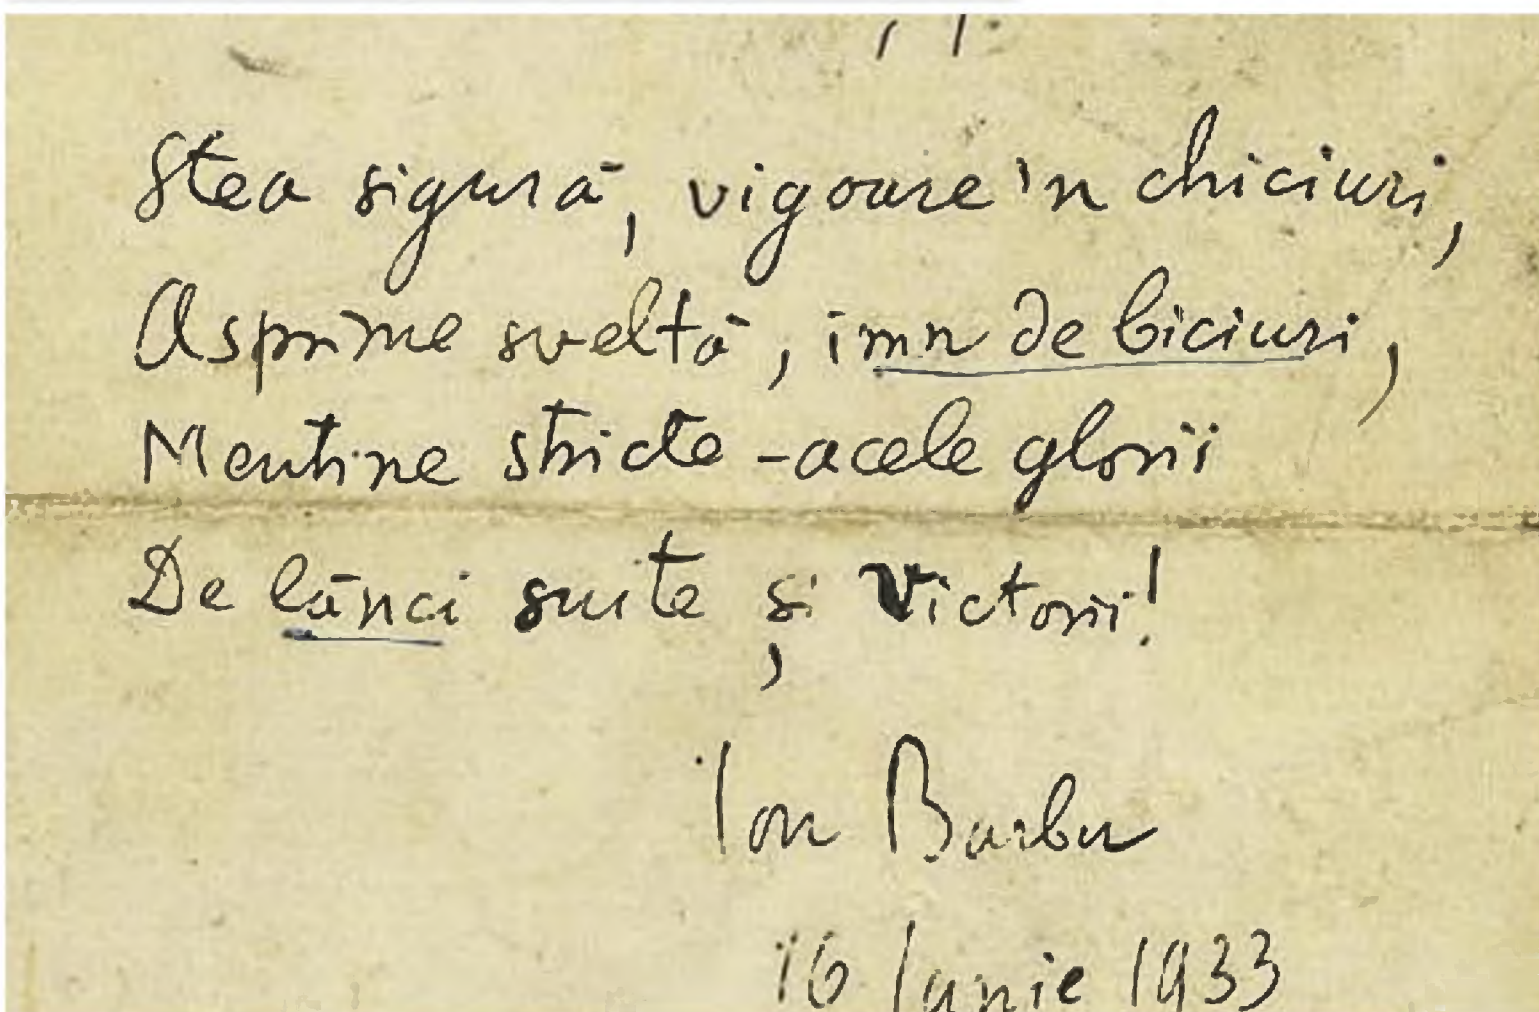 Stea sigură, vigoare 'n chiciuri,
Asprime sveltă, imn de biciuri,
Mentine stricte-acele glorii
De lănci suite și Victorii!
Ion Barbu
16 Iunie 1933